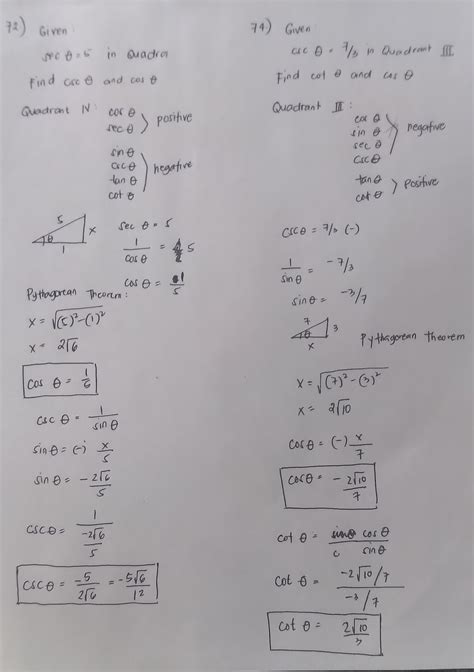 72) Given
sec θ = 5 in Quadra
Find csc θ and cos θ
Quadrant IV: cos θ
sec θ > positive
sin θ
csc θ
tan θ > negative
cot θ
5 x
θ
1
sec θ = 5
1/cos θ = 5
cos θ = 1/5
Pythagorean Theorem:
x = √(5)² - (1)²
x = 2√6
cos θ = 1/6
csc θ = 1/sin θ
sin θ = (-) x/5
sin θ = - 2√6/5
csc θ = 1/(-2√6/5)
csc θ = -5/2√6 = -5√6/12
74) Given
csc θ = 7/3 in Quadrant III
Find cot θ and cos θ
Quadrant III:
cos θ
sin θ
sec θ > negative
csc θ
tan θ
cot θ > positive
csc θ = 7/3 (-)
1/sin θ = -7/3
sin θ = -3/7
7 3
θ
x
Pythagorean Theorem
x = √(7)² - (3)²
x = 2√10
cos θ = (-) x/7
cos θ = - 2√10/7
cot θ = cos θ/sin θ
cot θ = -2√10/7 / -3/7
cot θ = 2√10/3